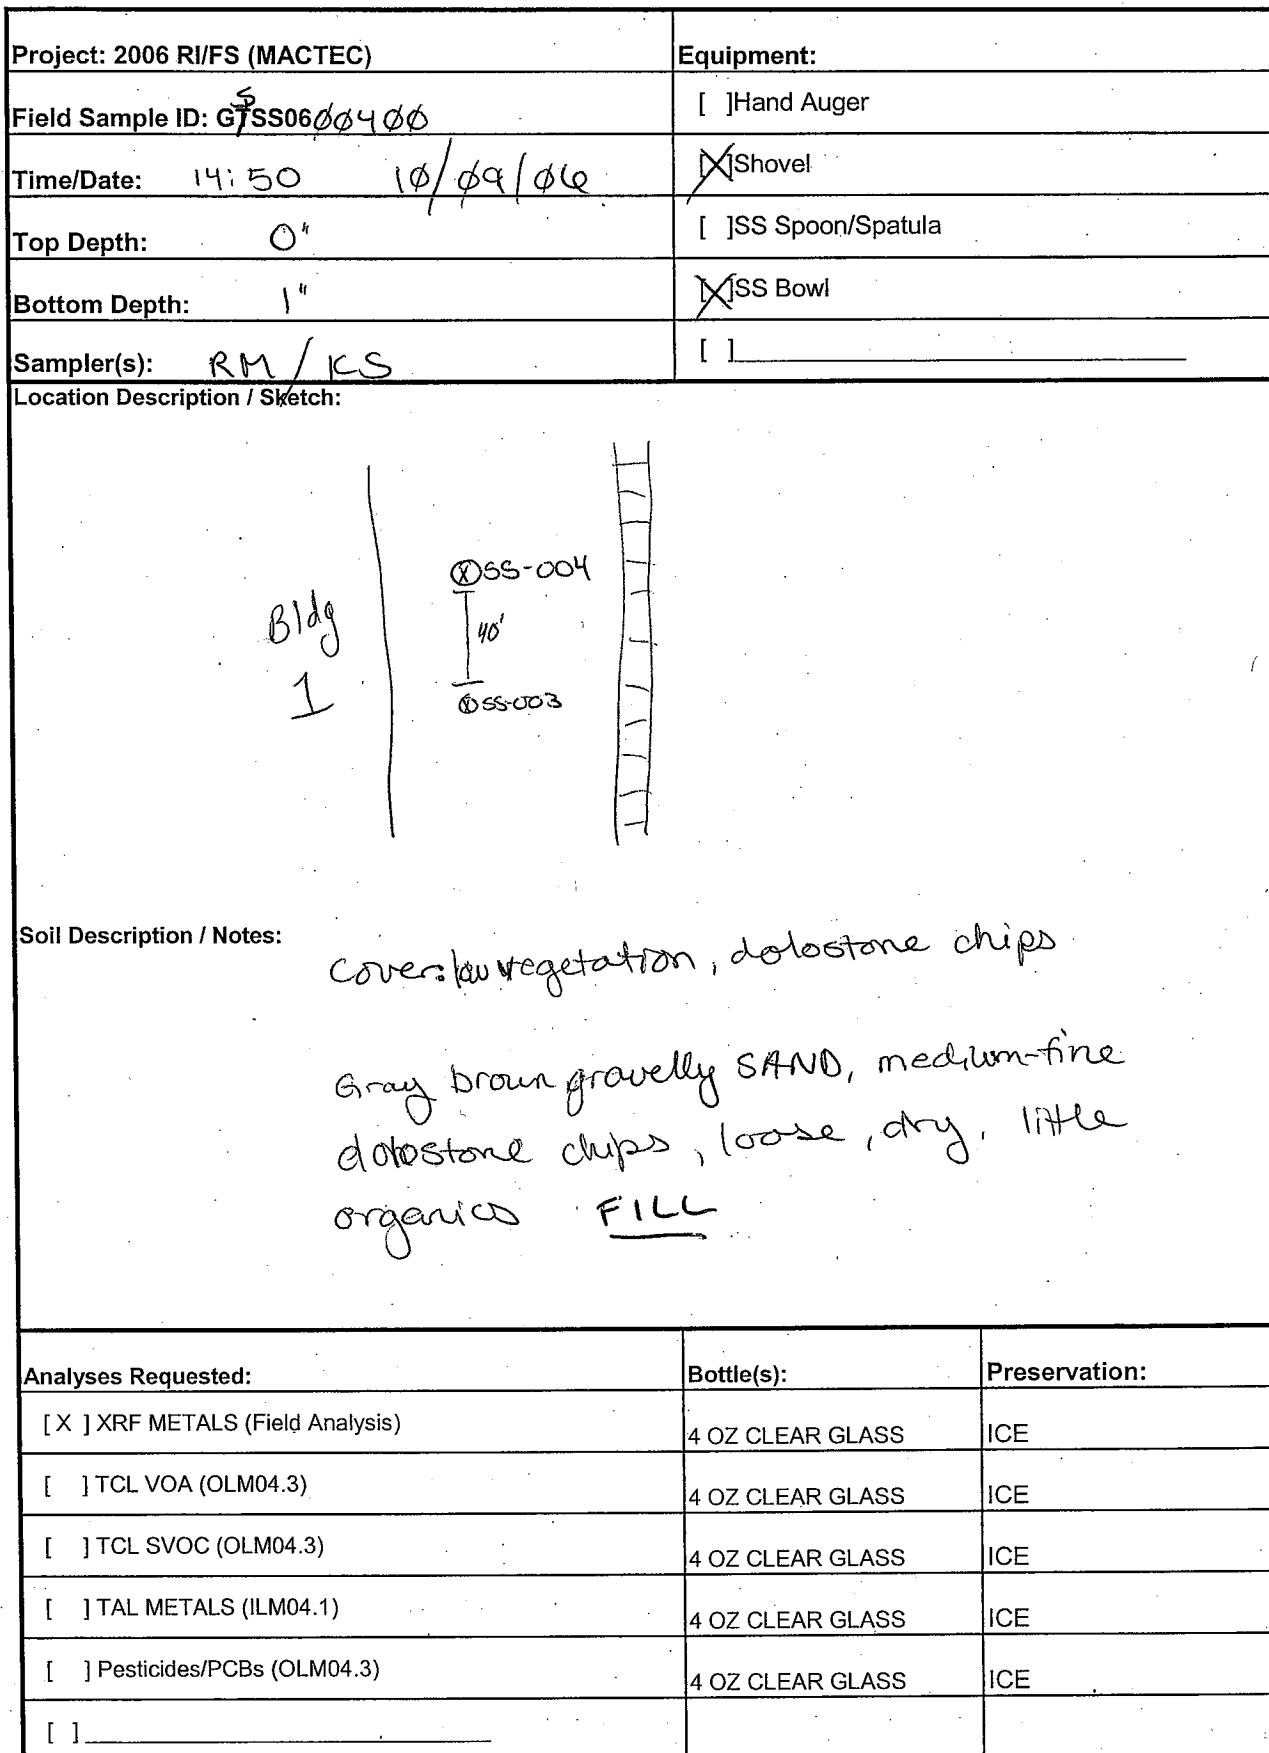 Project: 2006 RI/FS (MACTEC)
Equipment:
Field Sample ID: GSSS06ØØ4ØØ
[ ]Hand Auger
Time/Date: 14:50 1Ø/Ø9/Ø6
[X]Shovel
Top Depth: 0"
[ ]SS Spoon/Spatula
Bottom Depth: 1"
[X]SS Bowl
Sampler(s): RM / KS
[ ]
Location Description / Sketch:
SS-004
Bldg
1
40'
SS-003
Soil Description / Notes:
cover: low vegetation, dolostone chips
Gray brown gravelly SAND, medium-fine
dolostone chips, loose, dry, little
organics FILL
Analyses Requested:
Bottle(s):
Preservation:
[ X ] XRF METALS (Field Analysis)
4 OZ CLEAR GLASS
ICE
[ ] TCL VOA (OLM04.3)
4 OZ CLEAR GLASS
ICE
[ ] TCL SVOC (OLM04.3)
4 OZ CLEAR GLASS
ICE
[ ] TAL METALS (ILM04.1)
4 OZ CLEAR GLASS
ICE
[ ] Pesticides/PCBs (OLM04.3)
4 OZ CLEAR GLASS
ICE
[ ]